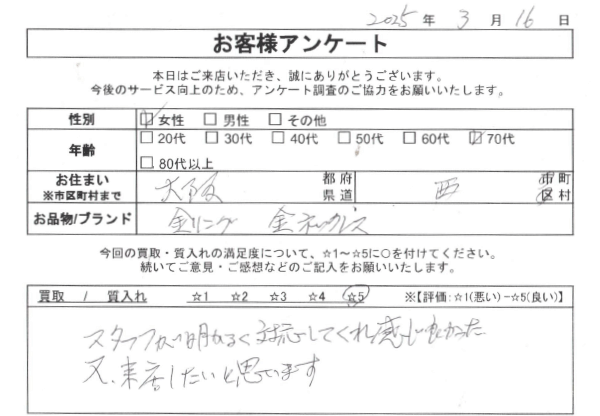 2025年 3月 16日
お客様アンケート
本日はご来店いただき、誠にありがとうございます。
今後のサービス向上のため、アンケート調査のご協力をお願いいたします。
性別 ☑女性 □男性 □その他
年齢 □20代 □30代 □40代 □50代 □60代 ☑70代
□80代以上
お住まい ※市区町村まで 大阪 都府県道 西 市町区村
お品物/ブランド 金リング 金ネックレス
今回の買取・質入れの満足度について、☆1～☆5に○を付けてください。
続いてご意見・ご感想などのご記入をお願いいたします。
買取 / 質入れ ☆1 ☆2 ☆3 ☆4 ☆5 ※【評価:☆1(悪い)－☆5(良い)】
スタッフが明かるく対応してくれ感じ良かった
又、来店したいと思ています